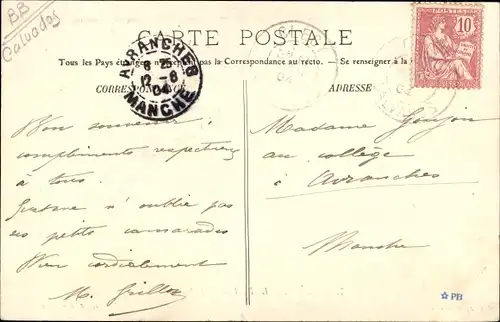 BB
Calvados
CARTE POSTALE
Tous les Pays étrangers n'acceptent pas la Correspondance au recto. — Se renseigner à la
CORRESPONDANCE
ADRESSE
AVRANCHES
8 25
12 - 8
04
MANCHE
POSTES
10
Bon souvenir,
compliments respectueux
à tous.
n'oublie pas
ses petits camarades
Bien cordialement
M. Grillon
Madame Goujon
au collège
à Avranches
Manche
PB